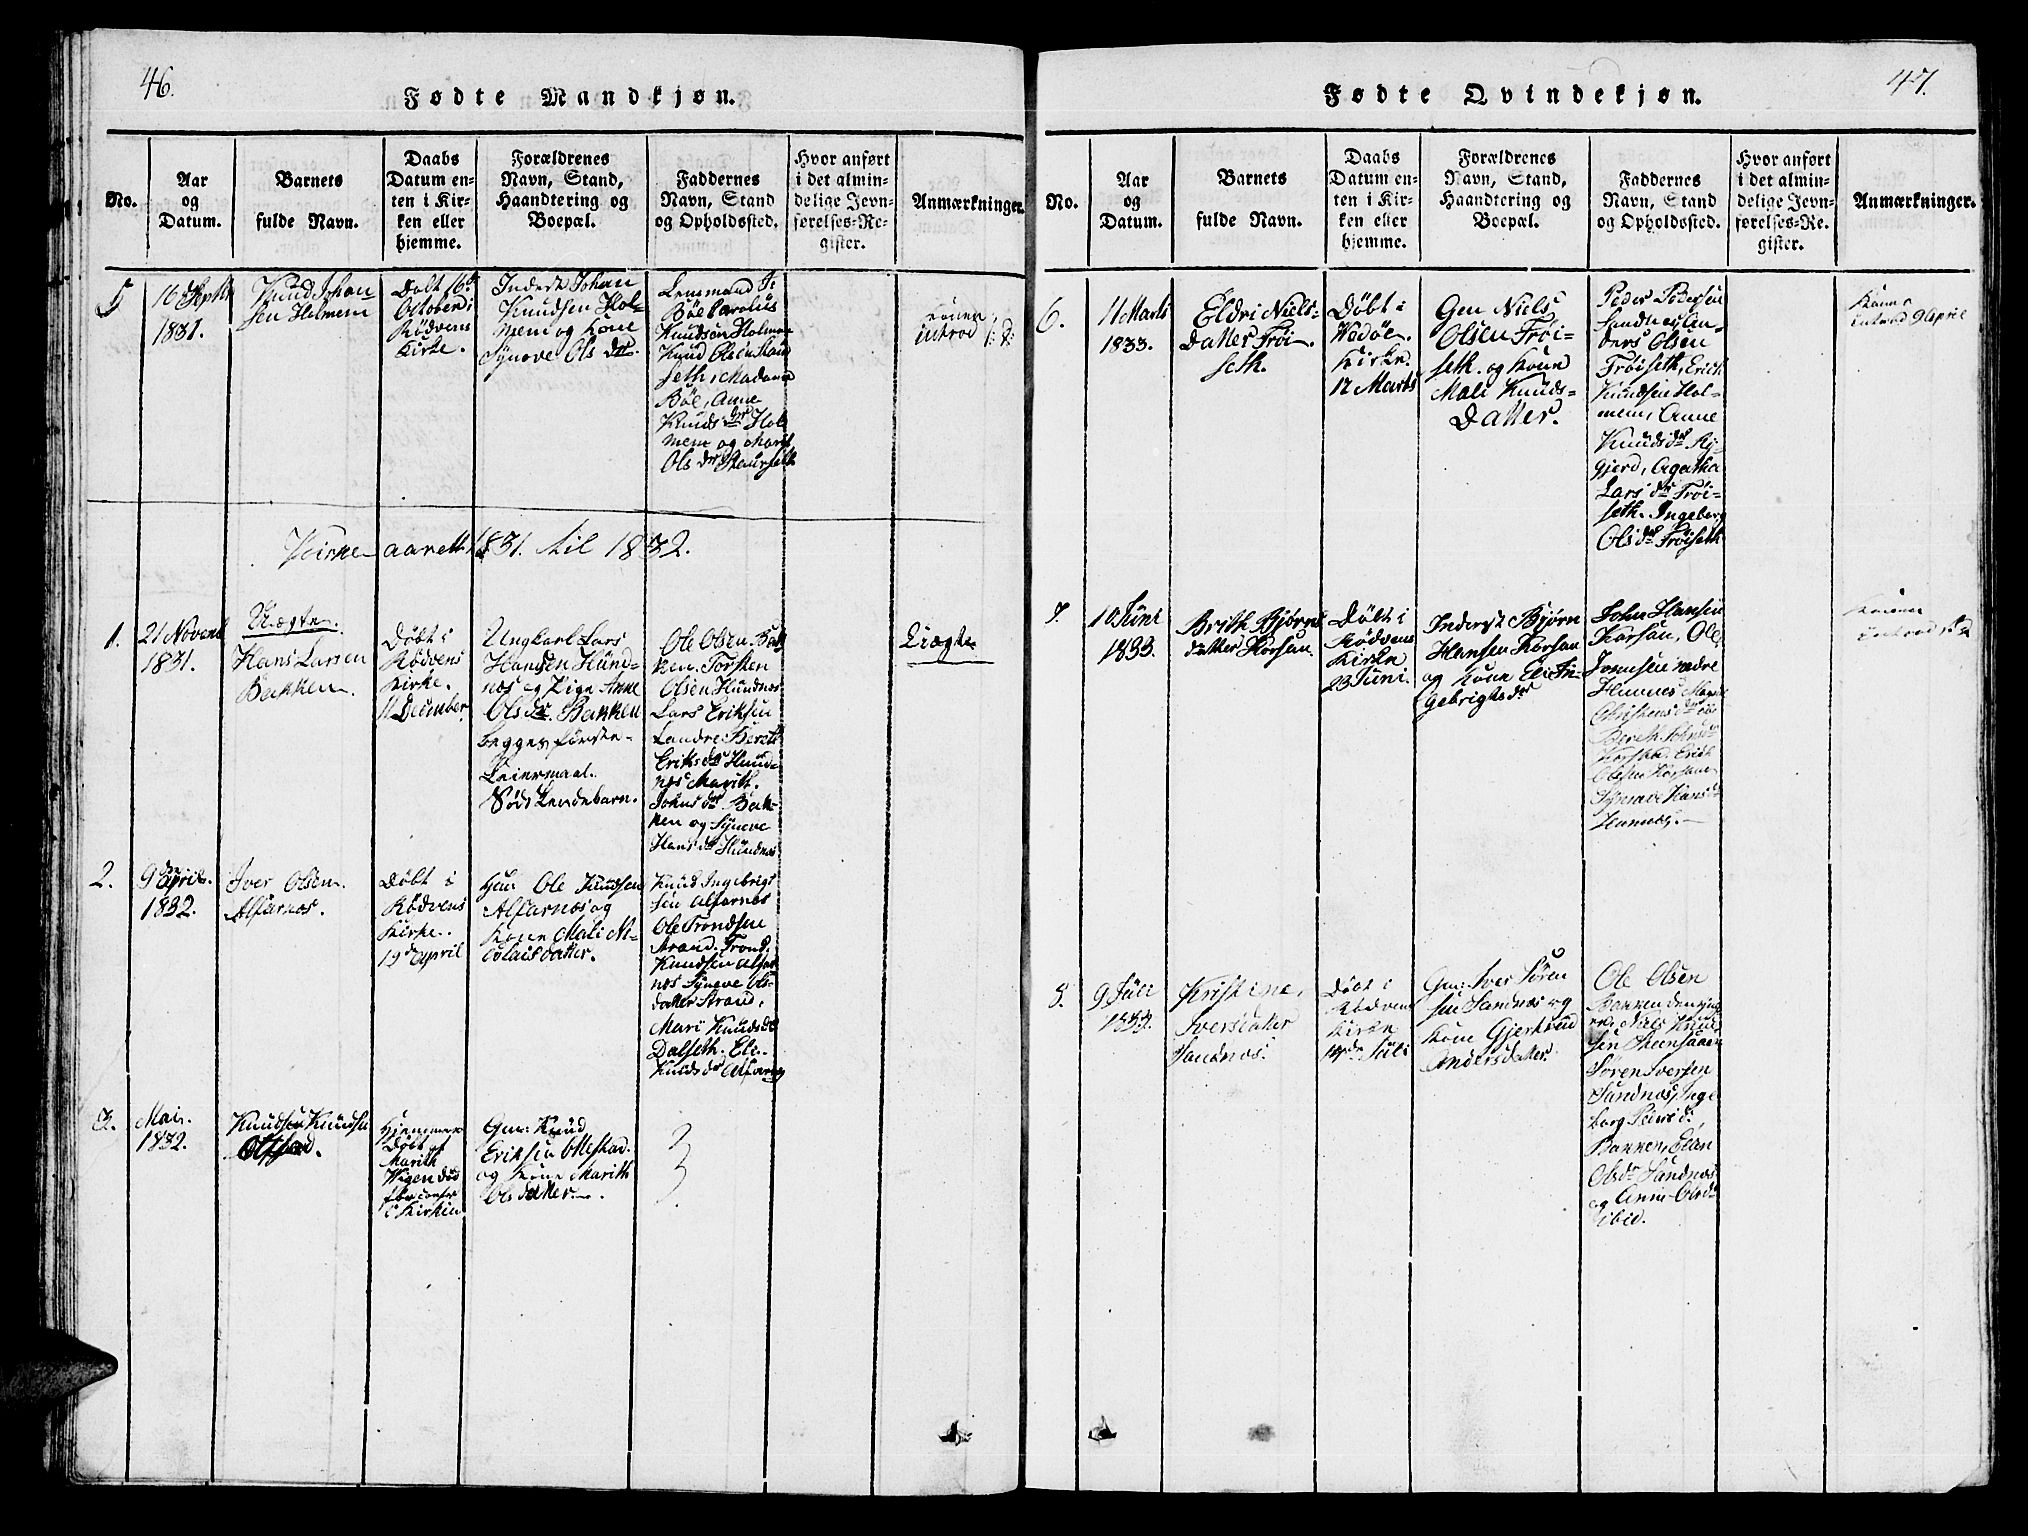 46.
Fødte Mandkjøn.
No.
Aar
og
Datum.
Barnets
fulde Navn.
Daabs
Datum en-
ten i Kir-
ken eller
hjemme.
Forældrenes
Navn, Stand,
Haandtering og
Boepæl.
Faddernes
Navn, Stand
og Opholdssted.
Hvor anført
i det almin-
delige Jevn-
førelses-Re-
gister.
Anmærkninger.
5
16 Septbr
1831.
Knud Johan-
sen Holmem
Døbt 16de
Octobr i
Rødvens
Kirke.
Inderst Johan
Knudsen Hol-
mem og Kone
Synove Ols dtr.
Lensmand
Böe Carolus
Knudsen Holmem
Knud Olsen
seth, Madame
Böe, Anne
Knuds dr Hol
mem og Marit
Ols dr
Konen
introd
Kirke-aaret 1831. til 1832.
1.
21 Novemb
1831.
Uægte.
Hans Larsen
Bakken.
Døbt i
Rødvens
Kirke.
11 December
Ungkarl Lars
Hansen Hund-
næs og Pige Anne
Ols dr Bakken
begges første
Leiermaal.
Ole Olsen Bak
ken. Torsten
Olsen Hundnæs
Lars Eriksen
Landre. Bereth
Eriks dr Hund-
næs Marith
Johns dr Bak-
ken og Syneve
Hans dr Hundnæs
Uægte
2.
9de April.
1832.
Iver Olsen
Alfarnæs.
Døbt i
Rødvens
Kirke.
19de April
Gm: Ole Knudsen
Alfarnæs og
Kone Mali Ni-
colaisdatter.
Knud Ingebrigt
sen Alfarnæs
Ole Trondsen
Strand. Trond
Knudsen Alfar
næs Syneve Ols-
datter Strand,
Mari Knudsdr
Dalseth. Eli
Knuds dr Alfarnæs
3.
Mai.
1832.
Knudsen Knudsen
Hjemme
Døbt af
Marith
Wigen død
før confir
i Kirken
Gm: Knud
Eriksen Ottestad.
og Kone Marith
Ols datter.
47.
Fødte Qvindekjøn.
No.
Aar
og
Datum.
Barnets
fulde Navn.
Daabs
Datum en-
ten i Kir-
ken eller
hjemme.
Forældrenes
Navn, Stand,
Haandtering og
Boepæl.
Faddernes
Navn, Stand
og Opholdssted.
Hvor anført
i det almin-
delige Jevn-
førelses-Re-
gister.
Anmærkninger.
6.
11 Marts
1833.
Eldri Niels-
datter Tröi-
seth.
Döbt i
Wedöe.
Kirke.
17 Marts
Gm Niels
Olsen Tröi-
seth. og Kone
Mali Knuds-
datter.
Peder Pedersen
Sandnes An-
ders Olsen
Tröiseth, Erich
Knudsen Hol-
mem, Anne
Knuds dr
gjerd, Agatha
Lars dr Tröi-
seth. Ingeberg
Ols dr Tröiseth
Konen
introd 9 April
7.
10 Juni
1833.
Brith Bjørns
datter Horsan.
Döbt i
Rödvens
Kirke
23 Juni.
Inderst Bjørn
Hansen Horsan
og Kone Eli In-
gebrigtsdr
John Hansen
Horsan, Ole
Jonnsen nedre
Hannes Marit
Christens dr
Bereth Johns dr
Horsan. Erich
Olsen Horsan
Synove Hans dr
Hannæs.
Konen
introd
8.
9 Juli
1833.
Kristine,
Iversdatter
Sandnæs.
Döbt i
Rødvens
Kirke
14de Juli
Gm: Iver Sören
sen Sandnæs og
Kone Gjertrud
Andersdatter
Ole Olsen
Bakken den yng
re, Niels Knud
sen
Søren Iversen
Sandnæs, Inge
borg Peders d.
Bakken, Elen
Olsdr Sandnæs
og Anne Olsdr
ibid.